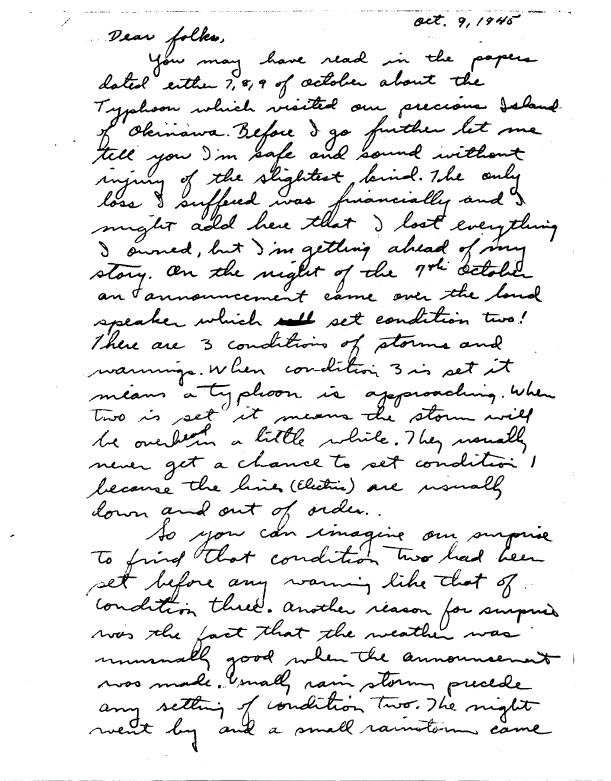 Oct. 9, 1945
Dear folks,
You may have read in the papers
dated either 7, 8, 9 of October about the
Typhoon which visited our precious Island
of Okinawa. Before I go further let me
tell you I'm safe and sound without
injury of the slightest kind. The only
loss I suffered was financially and I
might add here that I lost everything
I owned, but I'm getting ahead of my
story. On the night of the 7th October
an announcement came over the loud
speaker which set condition two!
There are 3 conditions of storms and
warnings. When condition 3 is set it
means a typhoon is approaching. When
two is set it means the storm will
be overhead in a little while. They usually
never get a chance to set condition 1
because the lines (Electric) are usually
down and out of order..
So you can imagine our surprise
to find that condition two had been
set before any warning like that of
condition three. Another reason for surprise
was the fact that the weather was
unusually good when the announsement
was made. Usually rain storms precede
any setting of condition two. The night
went by and a small rainstorm came